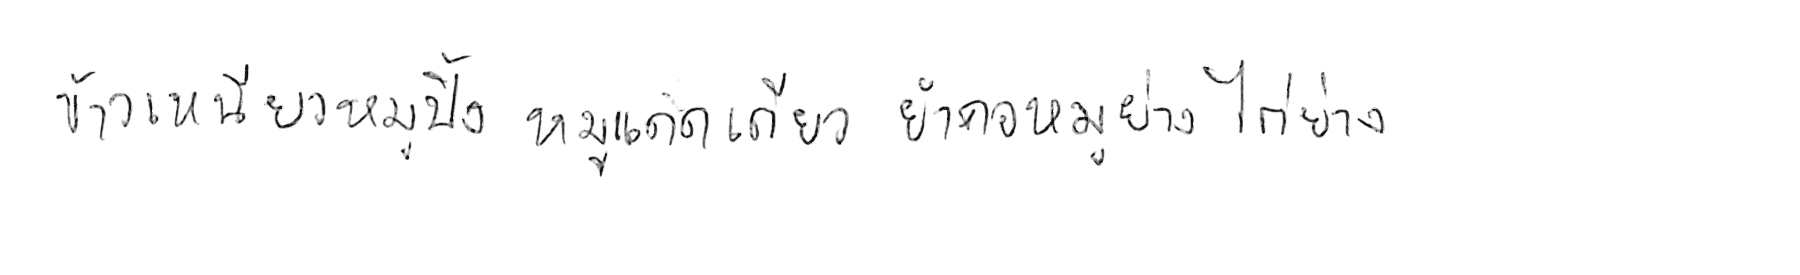 ข้าวเหนียวหมูปิ้ง หมูแดดเดียว ยำคอหมูย่าง ไก่ย่าง